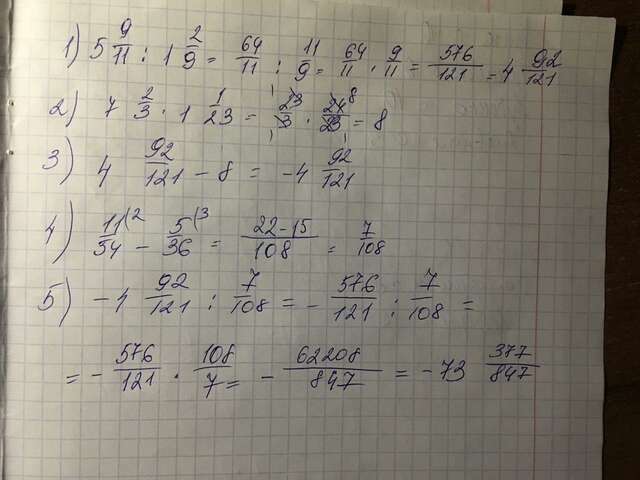 1) 5 9/11 : 1 2/9 = 64/11 : 11/9 = 64/11 · 9/11 = 576/121 = 4 92/121
2) 7 2/3 · 1 1/23 = 23/3 · 24/23 = 8
3) 4 92/121 - 8 = -4 92/121
4) 11/54 (2 - 5/36 (3 = 22-15/108 = 7/108
5) -4 92/121 : 7/108 = - 576/121 : 7/108 =
= - 576/121 · 108/7 = - 62208/847 = -73 377/847